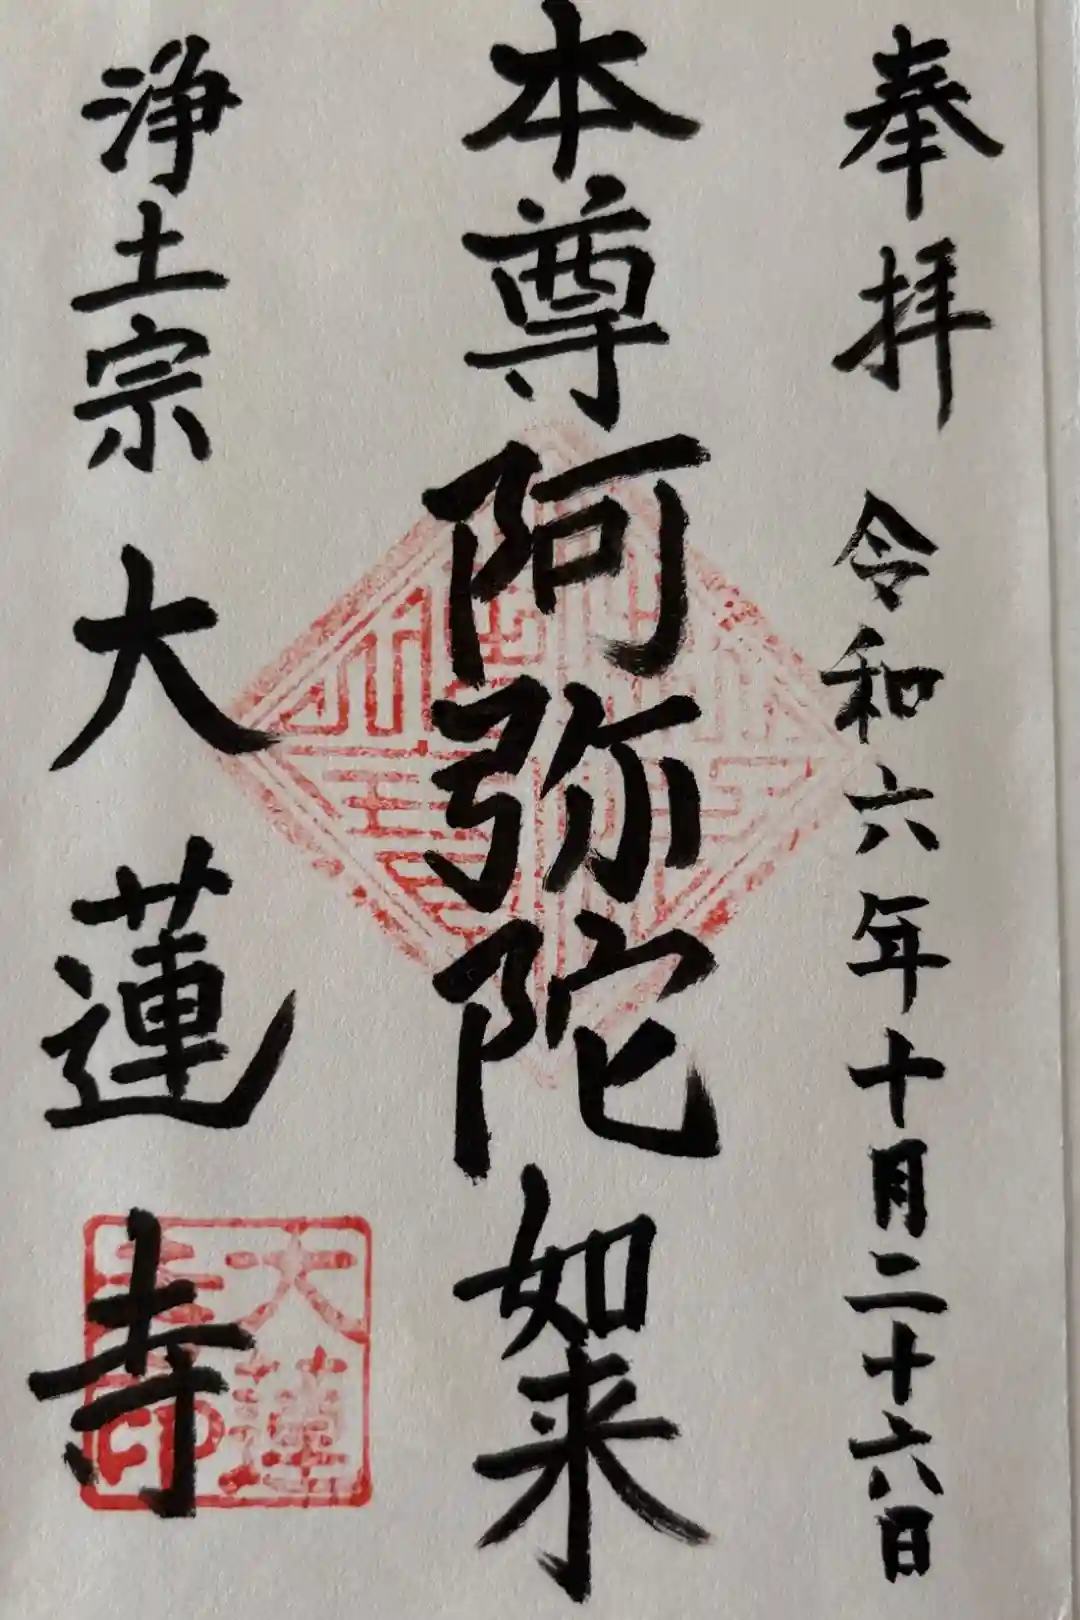 奉拝 令和六年十月二十六日
本尊阿弥陀如来
浄土宗 大蓮寺
大蓮
寺印